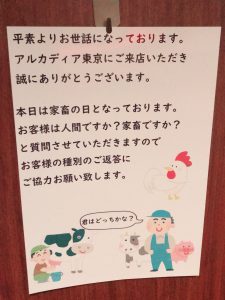 平素よりお世話になっております。
アルカディア東京にご来店いただき
誠にありがとうございます。
本日は家畜の日となっております。
お客様は人間ですか？家畜ですか？
と質問させていただきますので
お客様の種別のご返答に
ご協力お願い致します。
君はどっちかな？